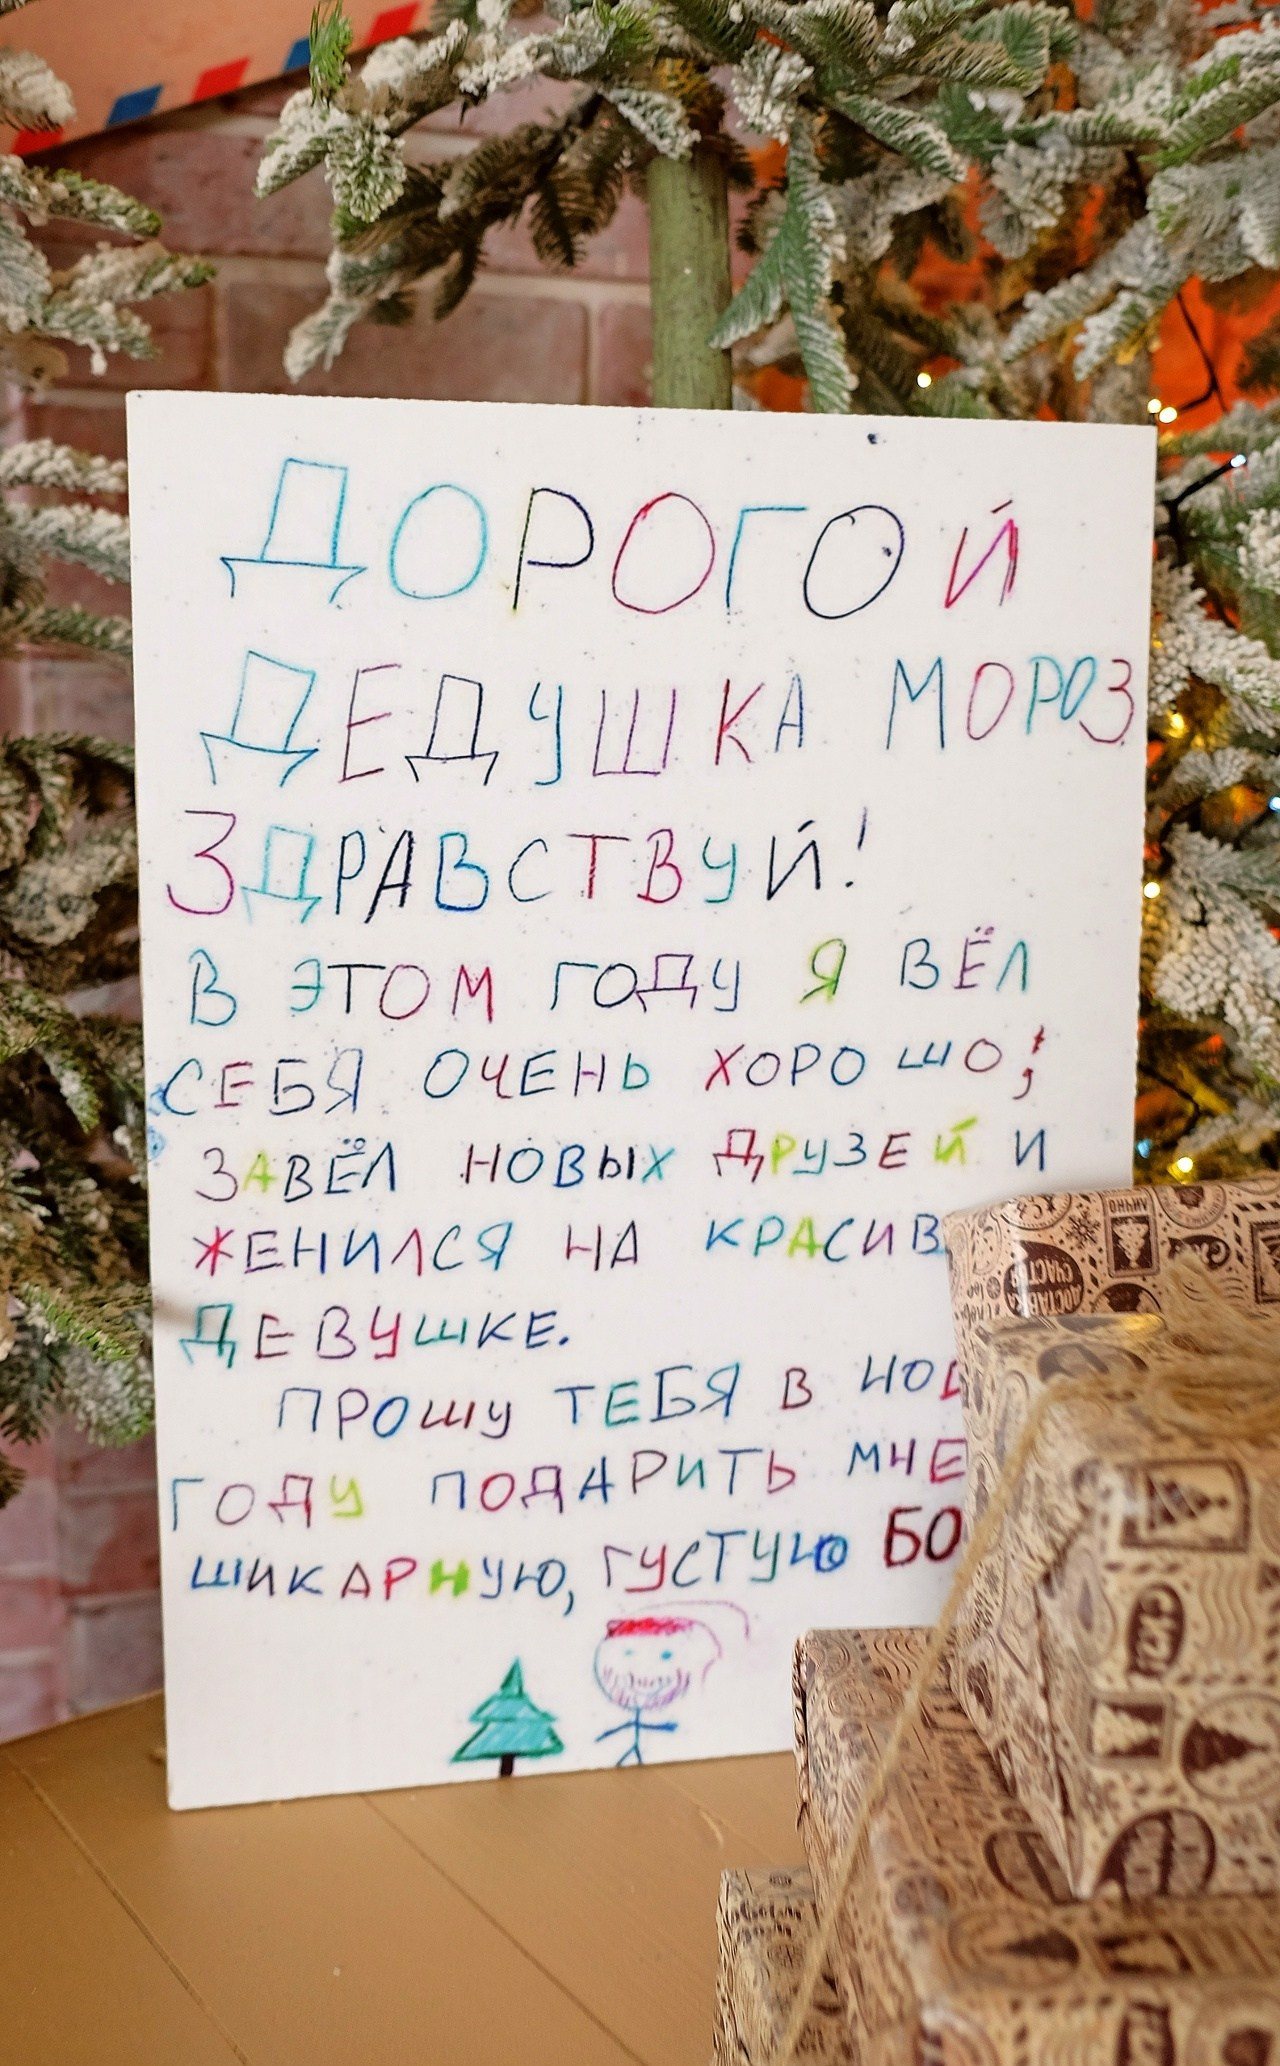 ДОРОГОЙ
ДЕДУШКА МОРОЗ
ЗДРАВСТВУЙ!
В ЭТОМ ГОДУ Я ВЁЛ
СЕБЯ ОЧЕНЬ ХОРОШО;
ЗАВЁЛ НОВЫХ ДРУЗЕЙ И
ЖЕНИЛСЯ НА КРАСИВ
ДЕВУШКЕ.
ПРОШУ ТЕБЯ В
ГОДУ ПОДАРИТЬ МНЕ
ШИКАРНУЮ, ГУСТУЮ БО
ЛИЧНО
ДОСТАВКА СЧАСТЬЯ